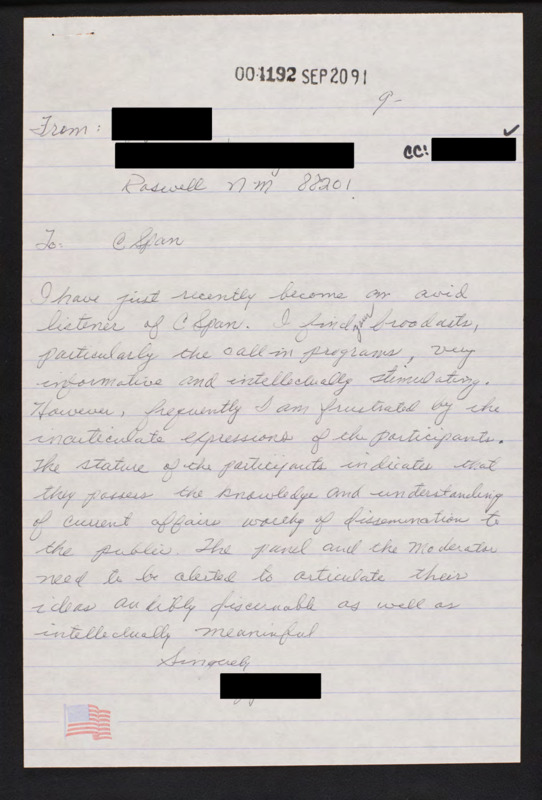 001192 SEP 20 91
9-
From:
CC:
Roswell N M 88201
To: C Span
I have just recently become an avid
listener of C Span. I find your broodcasts,
particularly the call in programs, very
informative and intellectually stimulating.
However, frequently I am frustrated by the
inarticulate expressions of the participants.
The stature of the participants indicates that
they possess the knowledge and understanding
of current affairs worthy of dissemination to
the public. The panel and the moderator
need to be alerted to articulate their
ideas audibly discernable as well as
intellectually meaningful
Sincerely